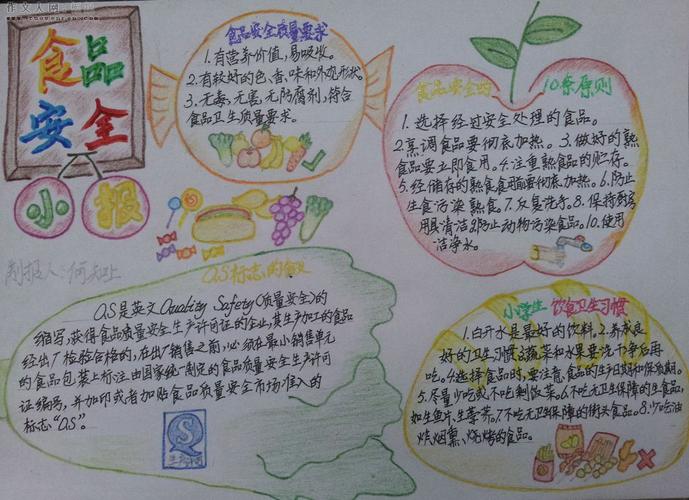 作文人网
食品
安全
小报
食品安全质量要求
1.有营养价值,易吸收。
2.有较好的色、香、味和外观形状。
3.无毒、无害,无防腐剂,符合
食品卫生质量要求。
食品安全的10条原则
1.选择经过安全处理的食品。
2.烹调食品要彻底加热。3.做好的熟
食品要立即食用。4.注重熟食品的贮存。
5.经储存的熟食食用前要彻底加热。6.防止
生食污染熟食。7.反复洗手。8.保持厨房
用具清洁。9.防止动物污染食品。10.使用
洁净水。
制报人:何
Q.S标志的含义
Q.S是英文Quality Safety(质量安全)的
缩写,获得食品质量安全生产许可证的企业,其生产加工的食品
经出厂检验合格的,在出厂销售之前,必须在最小销售单元
的食品包装上标注由国家统一制定的食品质量安全生产许可
证编号,并加印或者加贴食品质量安全市场准入的
标志“Q.S”。
小学生饮食卫生习惯
1.白开水是最好的饮料,2.养成良
好的卫生习惯。3.蔬菜和水果要洗干净后再
吃。4.选择食品时,要注意食品的生产日期和保质期。
5.尽量少吃或不吃剩饭菜。6.不吃无卫生保障的生食品,
如生鱼片,生荸荠。7.不吃无卫生保障的街头食品。8.少吃油
炸、烟熏、烧烤的食品。